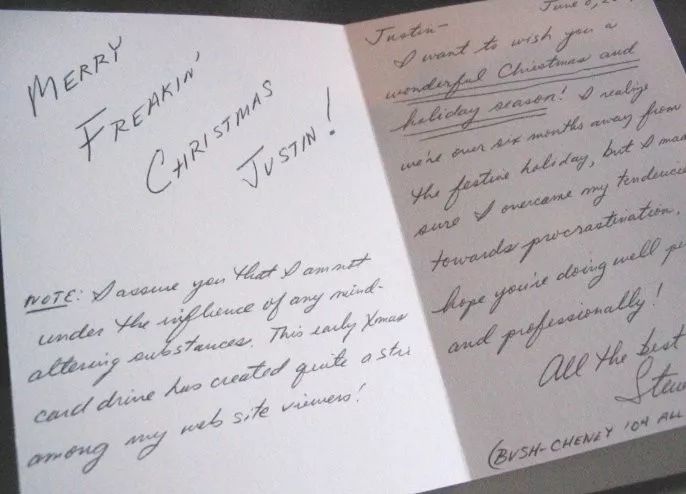 MERRY
FREAKIN'
CHRISTMAS
JUSTIN!
NOTE: I assure you that I am not
under the influence of any mind-
altering substances. This early Xmas
card drive has created quite a stir
among my web site viewers!
June
Justin-
I want to wish you a
wonderful Christmas and
holiday season! I realize
we're over six months away from
the festive holiday, but I
sure I overcame my
towards procrastination.
hope you're doing well
and professionally!
All the best
Steve
(BUSH-CHENEY '04 ALL